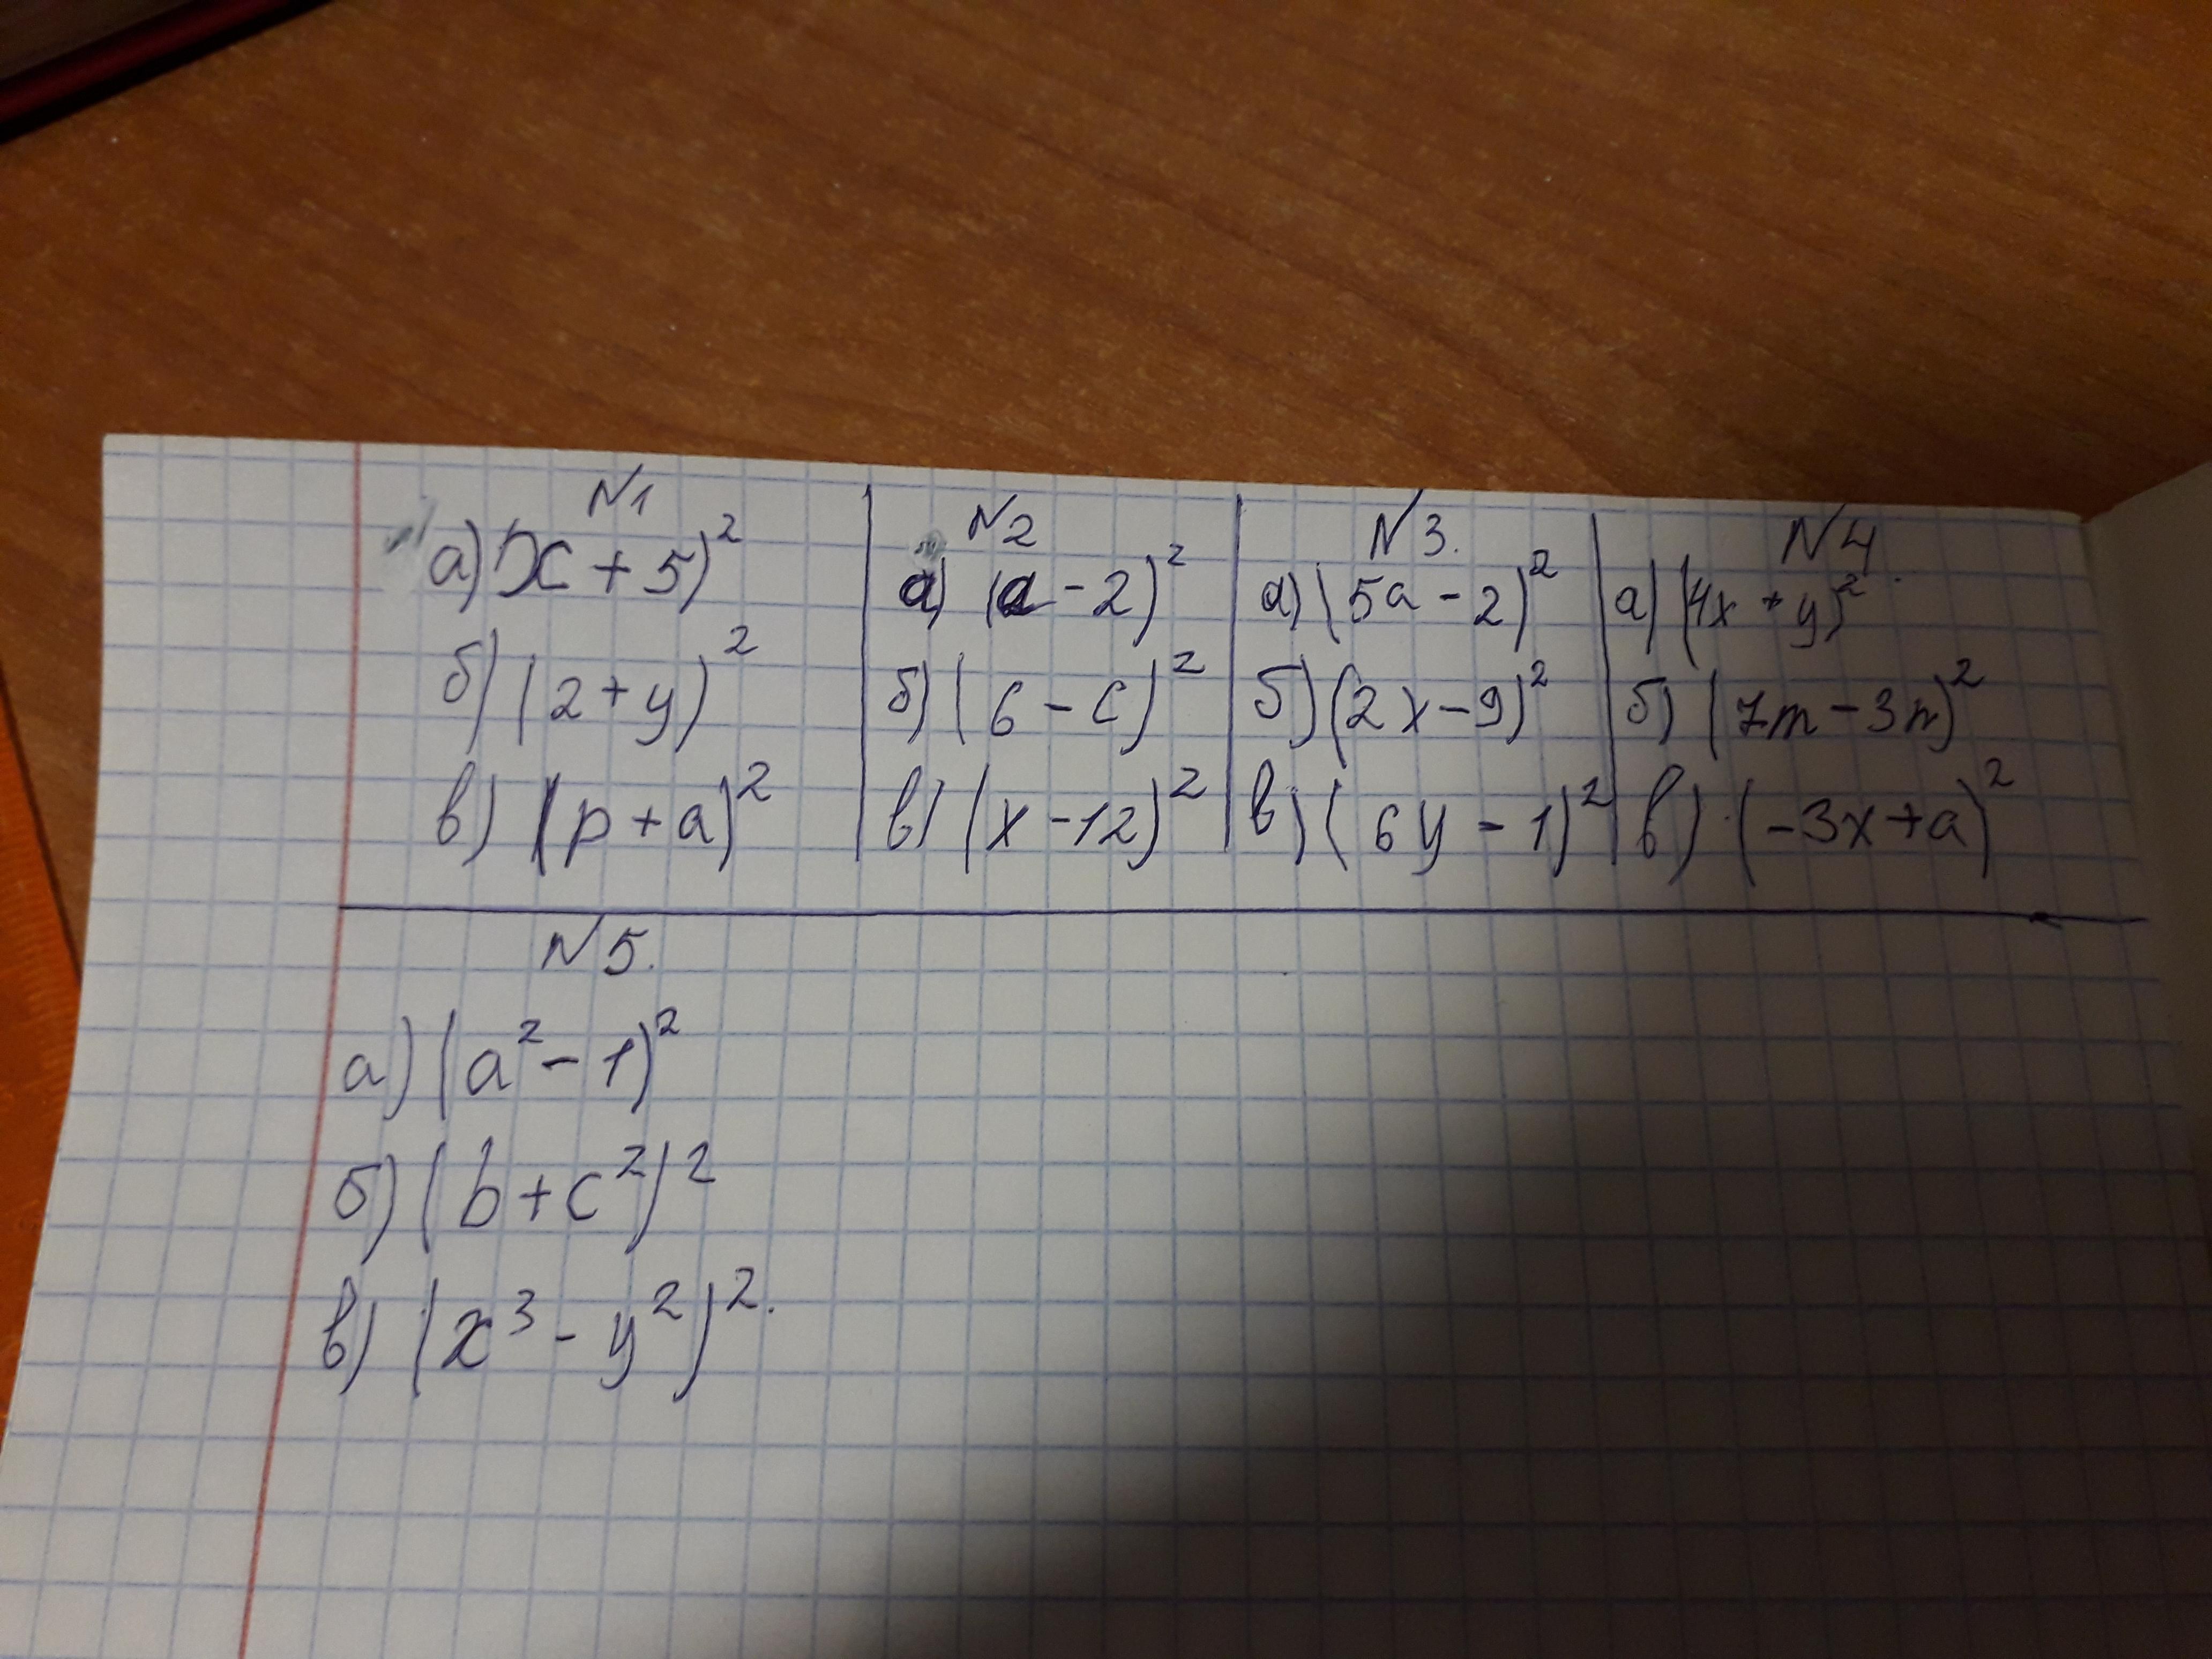 N1
а) (x + 5)²
б) (2 + y)²
в) (p + a)²
N2
а) (a - 2)²
б) (6 - c)²
в) (x - 12)²
N3.
а) (5a - 2)²
б) (2x - 9)²
в) (6y - 1)²
N4.
а) (4x + y)²
б) (7m - 3n)²
в) (-3x + a)²
N5.
а) (a² - 1)²
б) (b + c²)²
в) (x³ - y²)².